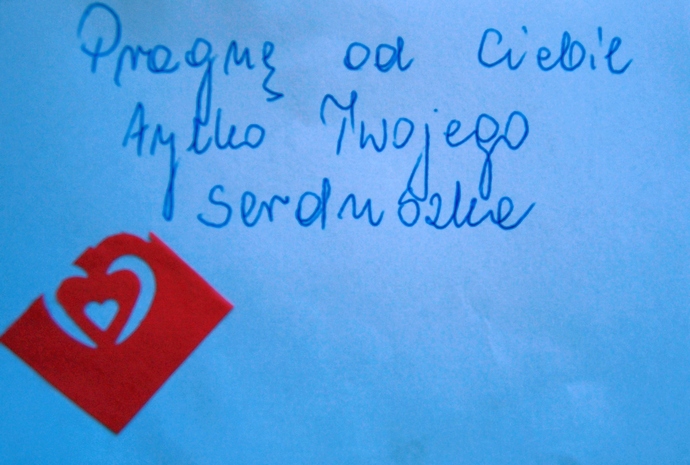 Pragnę od Ciebie
tylko Twojego
serduszka